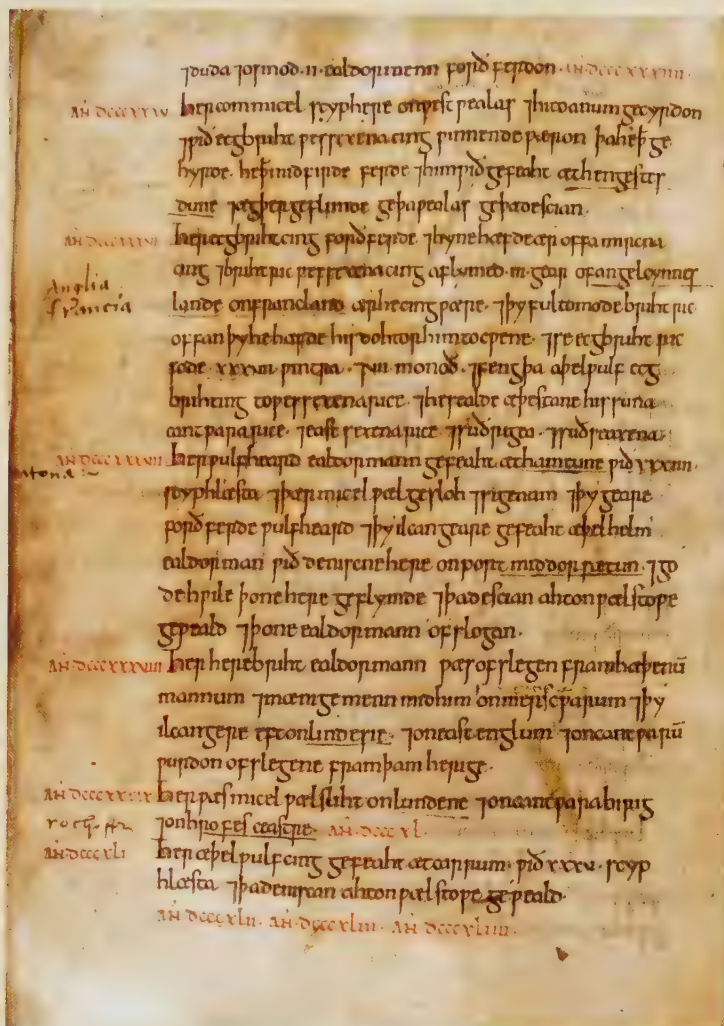 ⁊ duda ⁊ osmod .ii. ealdormenn forðferdon. AN. DCCCXXXIIII.
AN. DCCCXXXV Her com micel scyphere on ƿest ƿealas ⁊ hi to anum gecyrdon
⁊ ƿið ecgbriht ƿessexena cing ƿinnende ƿæron þa he þ ge
hyrde. he þa mid firde ferde ⁊ him ƿið gefeaht æt hengestes
dune ⁊ ægþer geflimde ge þa ƿealas ge þa deniscan.
Her ecgbriht cing forðferde. ⁊ hyne hæfde ær offa mircna
cing ⁊ brihtric ƿessexena cing aflymed .iii. gear of angelcynnes
Anglia
francia
lande on francland ær he cing ƿære. ⁊ þy fultomode brihtric
offan þy he hæfde his dohtor him to cƿene. ⁊ se ecgbriht ric
sode .xxxvii. ƿintra. ⁊ vii. monoð. ⁊ feng þa aþelƿulf ecg
brihting to ƿessexena rice. ⁊ he sealde æþestane his suna
cantƿara rice. ⁊ east sexena rice. ⁊ suðrigea. ⁊ suð seaxena.
AN. DCCCXXXVII Her ƿulfheard ealdormann gefeaht æt hamtune ƿið xxxiii.
scyphlæsta ⁊ þær micel ƿæl gesloh ⁊ sige nam ⁊ þy geare
forðferde ƿulfheard ⁊ þy ilcan geare gefeaht æþelhelm
ealdorman ƿið deniscne here on port mid dorsætun. ⁊ go
de hƿile þone here geflymde ⁊ þa deniscan ahton ƿælstoƿe
geƿeald ⁊ þone ealdormann ofslogan.
AN. DCCCXXXVIII Her herebriht ealdormann ƿæs ofslegen fram hæþenū
mannum ⁊ mænige menn mid him on merscƿarium ⁊ þy
ilcan gere eft on lindesie. ⁊ on east englum ⁊ on cantƿarū
ƿurdon ofslegene fram þam herige.
AN. DCCCXXXIX Her ƿæs micel ƿælsliht on lundene ⁊ on cantƿarabirig
⁊ on hrofesceastre. AN. DCCCXL.
AN. DCCCXLI Her æþelƿulf cing gefeaht æt carrium. ƿið xxxv. scyp
hlæsta ⁊ þa deniscan ahton ƿælstoƿe geƿeald.
AN. DCCCXLII. AN. DCCCXLIII. AN. DCCCXLIIII.